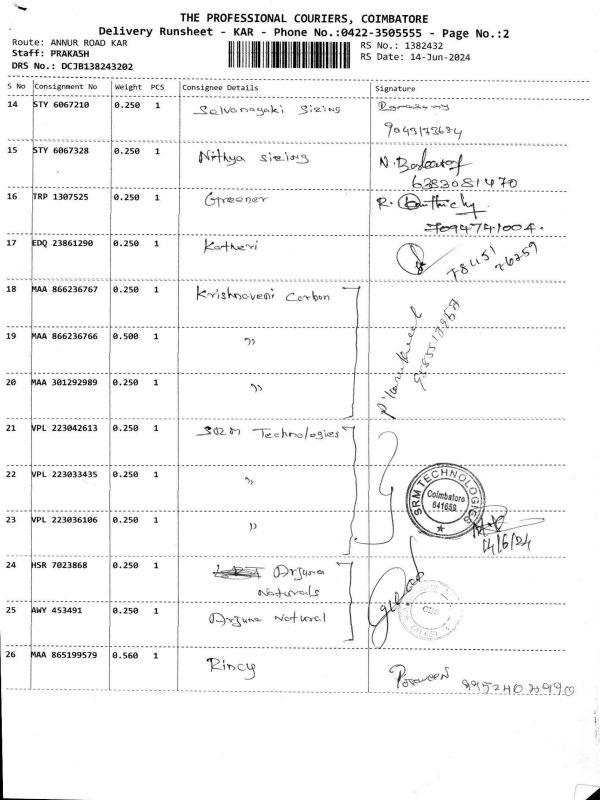 THE PROFESSIONAL COURIERS, COIMBATORE
Delivery Runsheet - KAR - Phone No.:0422-3505555 - Page No.:2
Route: ANNUR ROAD KAR
RS No.: 1382432
Staff: PRAKASH
RS Date: 14-Jun-2024
DRS No.: DCJB138243202
S No Consignment No Weight PCS Consignee Details Signature
14 STY 6067210 0.250 1 Selvanayaki Sizing
15 STY 6067328 0.250 1 Nithya sizing
6383081470
16 TRP 1307525 0.250 1 Greener
7094741004.
17 EDQ 23861290 0.250 1 Katheri
78451
76259
18 MAA 866236767 0.250 1 Krishnaveni Carbon
19 MAA 866236766 0.500 1 "
20 MAA 301292989 0.250 1 "
21 VPL 223042613 0.250 1 SRM Technologies
22 VPL 223033435 0.250 1 "
SRM TECHNOLOGIES
Coimbatore
641659
23 VPL 223036106 0.250 1 "
14/6/24
24 HSR 7023868 0.250 1 Arjuna
Naturals
25 AWY 453491 0.250 1 Arjuna Natural
26 MAA 865199579 0.560 1 Rincy